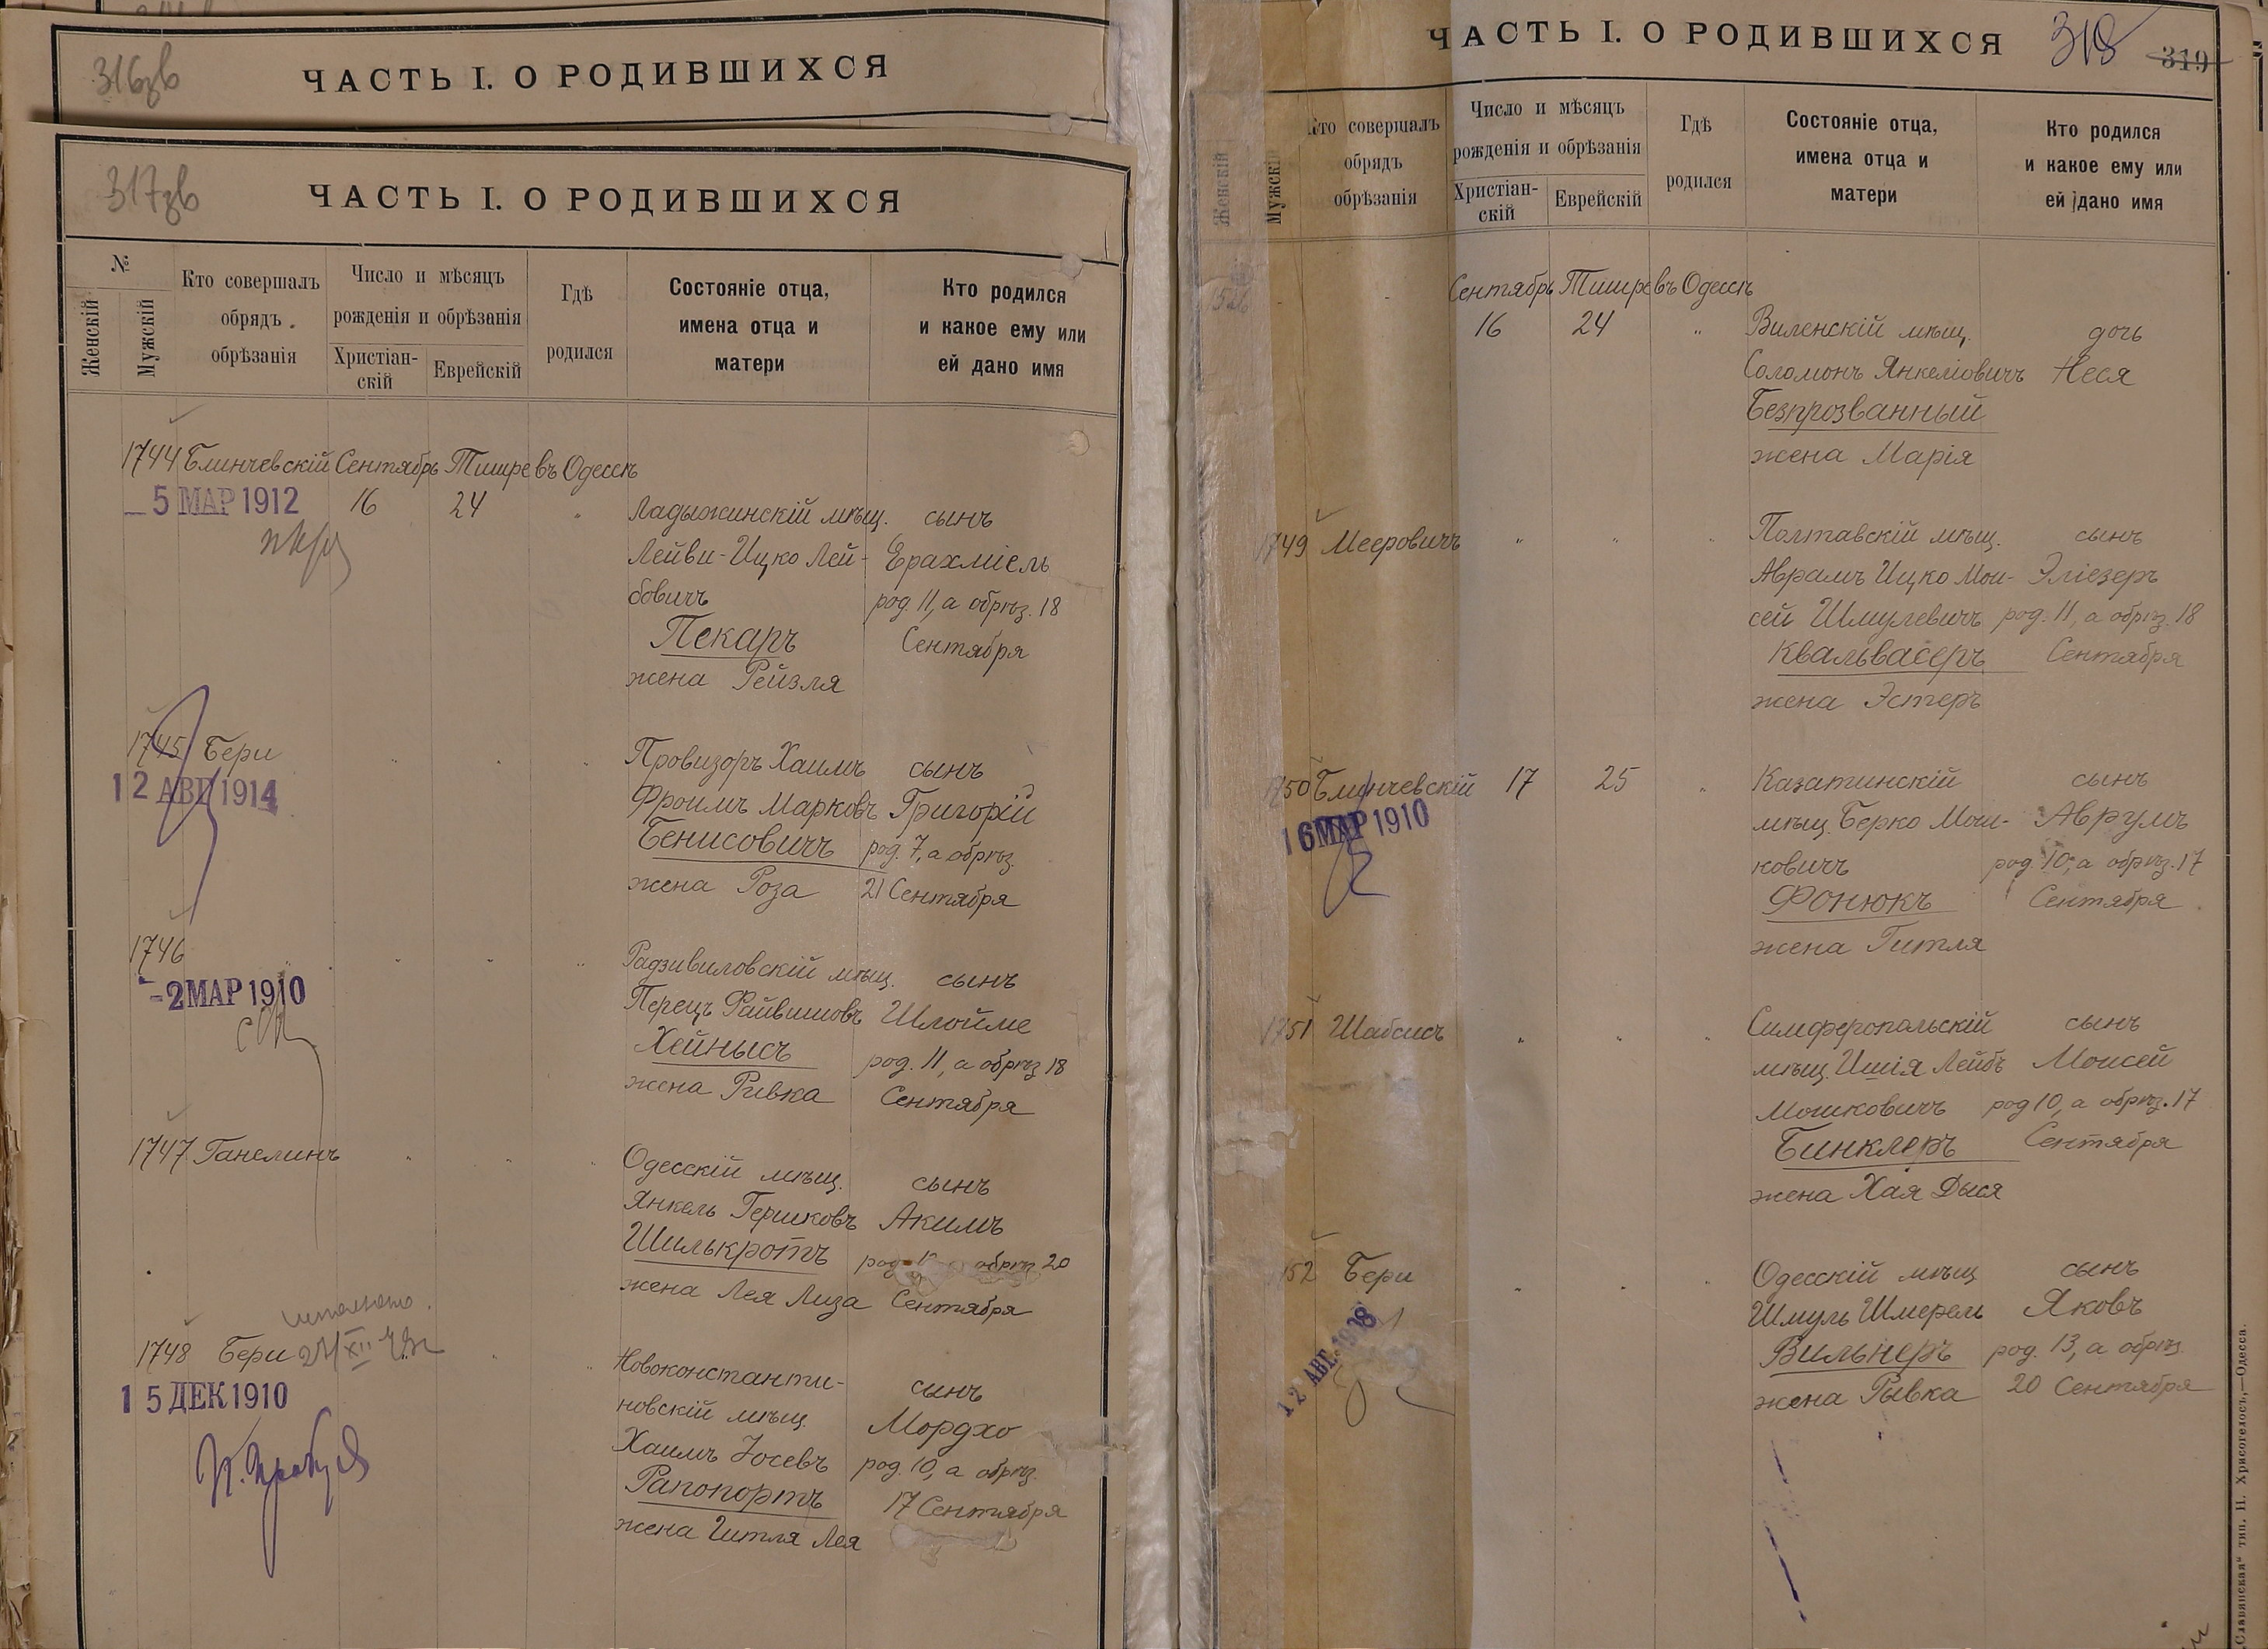 316зв
ЧАСТЬ I. О РОДИВШИХСЯ
317зв
ЧАСТЬ I. О РОДИВШИХСЯ
№
Женскій
Мужскій
Кто совершалъ
обрядъ
обрѣзанія
Число и мѣсяцъ
рожденія и обрѣзанія
Христіан-
скій
Еврейскій
Гдѣ
родился
Состояніе отца,
имена отца и
матери
Кто родился
и какое ему или
ей дано имя
1744 Блинчевскій Сентябрь Тишре въ Одессѣ
5 МАР 1912 16 24 " Ладыжинскій мѣщ. сынъ
Лейви-Ицко Лей- Ерахміель
бовичъ род. 11, а обрѣз. 18
Пекаръ Сентября
жена Рейзля
1745 Бери " " " Провизоръ Хаимъ сынъ
12 АВГ 1914 Фроимъ Марковъ Григорій
Бенисовичъ род. 7, а обрѣз.
жена Роза 21 Сентября
1746 " " " " Радзивиловскій мѣщ. сынъ
-2 МАР 1910 Перецъ Файвишовъ Шлойме
Хейнысъ род. 11, а обрѣз 18
жена Ривка Сентября
1747 Ганелинъ " " " Одесскій мѣщ. сынъ
Янкель Гершковъ Акимъ
Шилькротъ род. обрѣз 20
жена Лея Лиза Сентября
1748 Бери " " Новоконстанти- сынъ
15 ДЕК 1910 новскій мѣщ. Мордхо
Хаимъ Іосевъ род. 10, а обрѣз.
Рапопортъ 17 Сентября
жена Гитля Лея
ЧАСТЬ I. О РОДИВШИХСЯ 318 319
Женскій
Мужскій
Кто совершалъ
обрядъ
обрѣзанія
Число и мѣсяцъ
рожденія и обрѣзанія
Христіан-
скій
Еврейскій
Гдѣ
родился
Состояніе отца,
имена отца и
матери
Кто родился
и какое ему или
ей дано имя
Сентябрь Тишре въ Одессѣ
16 24 " Виленскій мѣщ. дочь
Соломонъ Янкеліовичъ Неся
Безпрозванный
жена Марія
1749 Мееровичъ " " " Полтавскій мѣщ. сынъ
Аврамъ Ицко Мои- Эліезеръ
сей Шмулевичъ род. 11, а обрѣз. 18
Квальвасеръ Сентября
жена Эстеръ
1750 Блинчевскій 17 25 " Казатинскій сынъ
16 МАР 1910 мѣщ. Берко Мош- Аврумъ
ковичъ род. 10, а обрѣз. 17
Фонюкъ Сентября
жена Гитля
1751 Шабсисъ " " " Симферопольскій сынъ
мѣщ. Ишія Лейбъ Моисей
Мошковичъ род 10, а обрѣз. 17
Бинклеръ Сентября
жена Хая Дыся
152 Бери " " " Одесскій мѣщ сынъ
Шмуль Шмерель Яковъ
12 АВГ. Вильнеръ род. 13, а обрѣз.
жена Рывка 20 Сентября
„Славянская“ тип. Н. Хрисогелосъ,—Одесса.